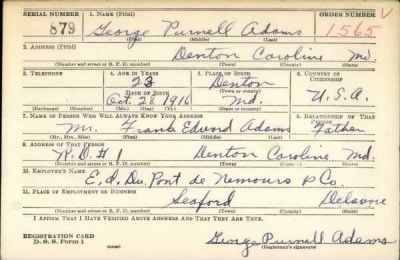 SERIAL NUMBER 1. NAME (Print) ORDER NUMBER V
879 George Purnell Adams 1565
(First) (Middle) (Last)
2. ADDRESS (Print)
Denton Caroline Md.
(Number and street or R. F. D. number) (Town) (County) (State)
3. TELEPHONE 4. AGE IN YEARS 5. PLACE OF BIRTH 6. COUNTRY OF CITIZENSHIP
23 Denton
DATE OF BIRTH (Town or county)
Oct. 28 1916 Md. U.S.A.
(Exchange) (Number) (Mo.) (Day) (Yr.) (State or country)
7. NAME OF PERSON WHO WILL ALWAYS KNOW YOUR ADDRESS 8. RELATIONSHIP OF THAT PERSON
Mr. Frank Edward Adams Father
(Mr., Mrs., Miss) (First) (Middle) (Last)
9. ADDRESS OF THAT PERSON
R.D # 1 Denton Caroline Md.
(Number and street or R. F. D. number) (Town) (County) (State)
10. EMPLOYER'S NAME
E, d, Du, Pont de Nemours & Co
11. PLACE OF EMPLOYMENT OR BUSINESS
Seaford Delavore
(Number and street or R. F. D. number) (Town) (County) (State)
I AFFIRM THAT I HAVE VERIFIED ABOVE ANSWERS AND THAT THEY ARE TRUE.
REGISTRATION CARD
D. S. S. Form 1 (over) George Purnell Adams
(Registrant's signature)